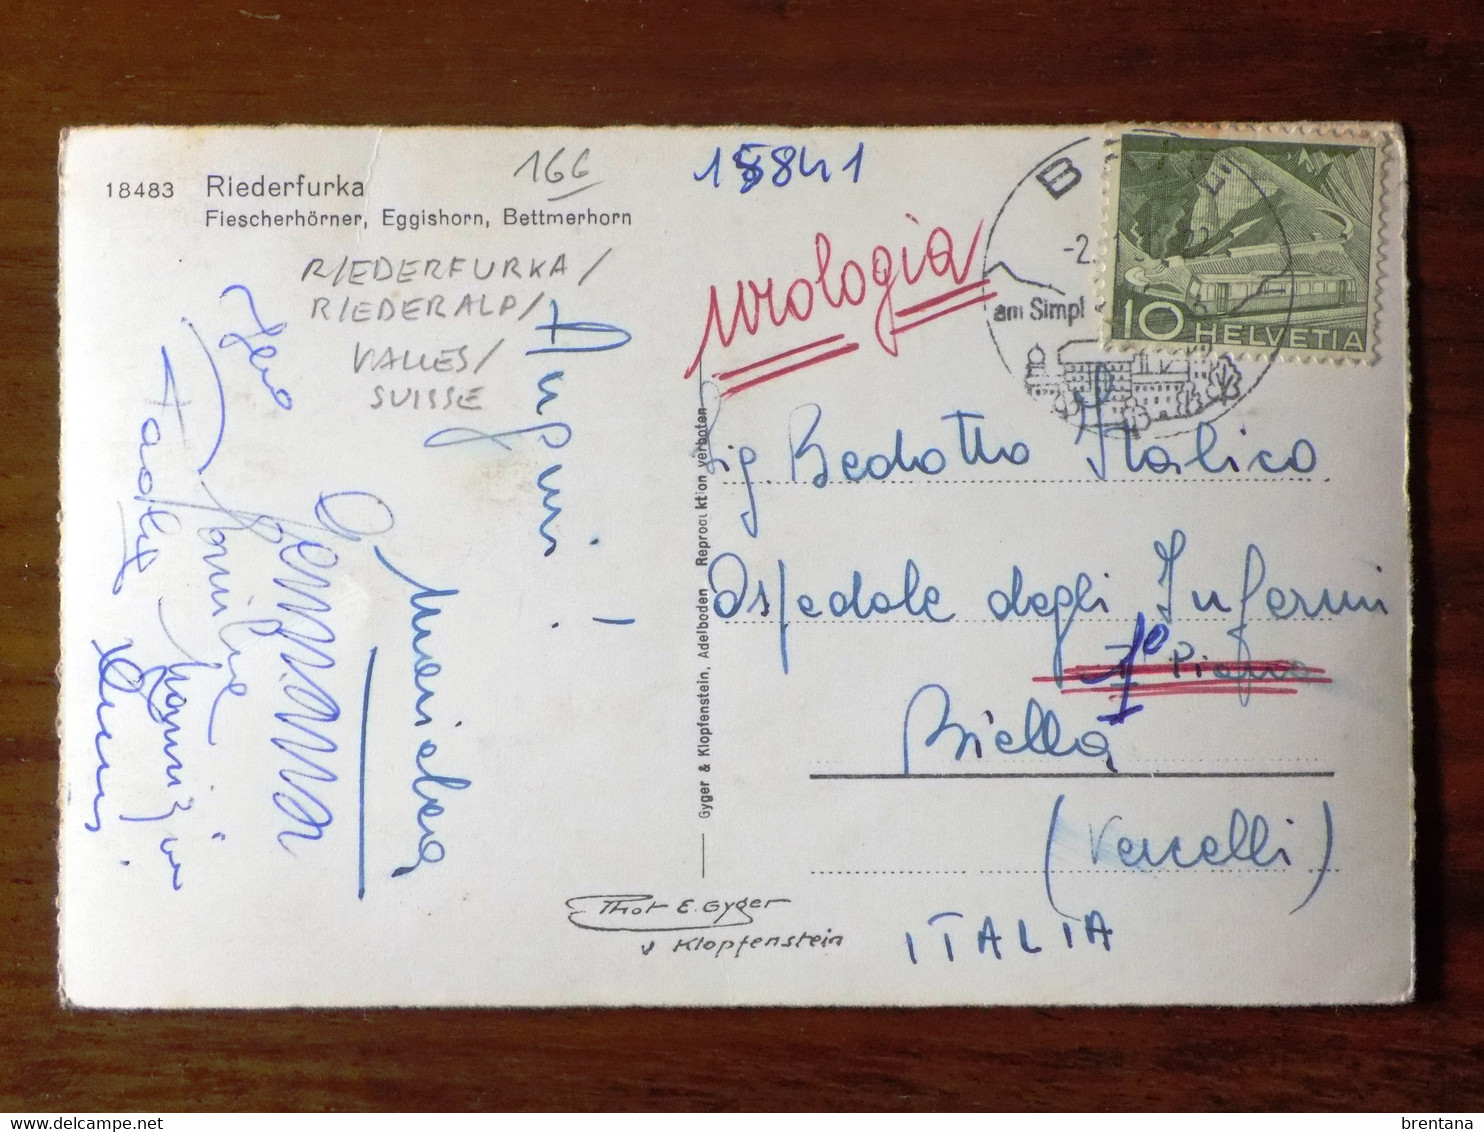 18483 Riederfurka
Fiescherhörner, Eggishorn, Bettmerhorn
166
RIEDERFURKA/
RIEDERALP/
VALLES/
SUISSE
Auguri!
Gemma
15841
urologia
am Simpl
10 HELVETIA
Sig. Bedotto Italico
Ospedale degli Infermi
1º Piano
Biella
(Vercelli)
ITALIA
Gyger & Klopfenstein, Adelboden Reproduktion verboten
Phot E. Gyger
v Klopfenstein
brentana